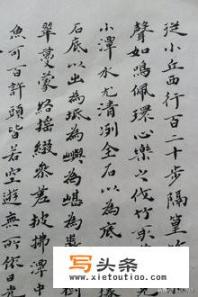 從小丘西行百二十步隔篁竹
聲如鳴佩環心樂之伐竹
小潭水尤清冽全石以為底
石底以出為坻為嶼為嵁為
翠蔓蒙絡搖綴參差披拂潭中
魚可百許頭皆若空遊無所依日光